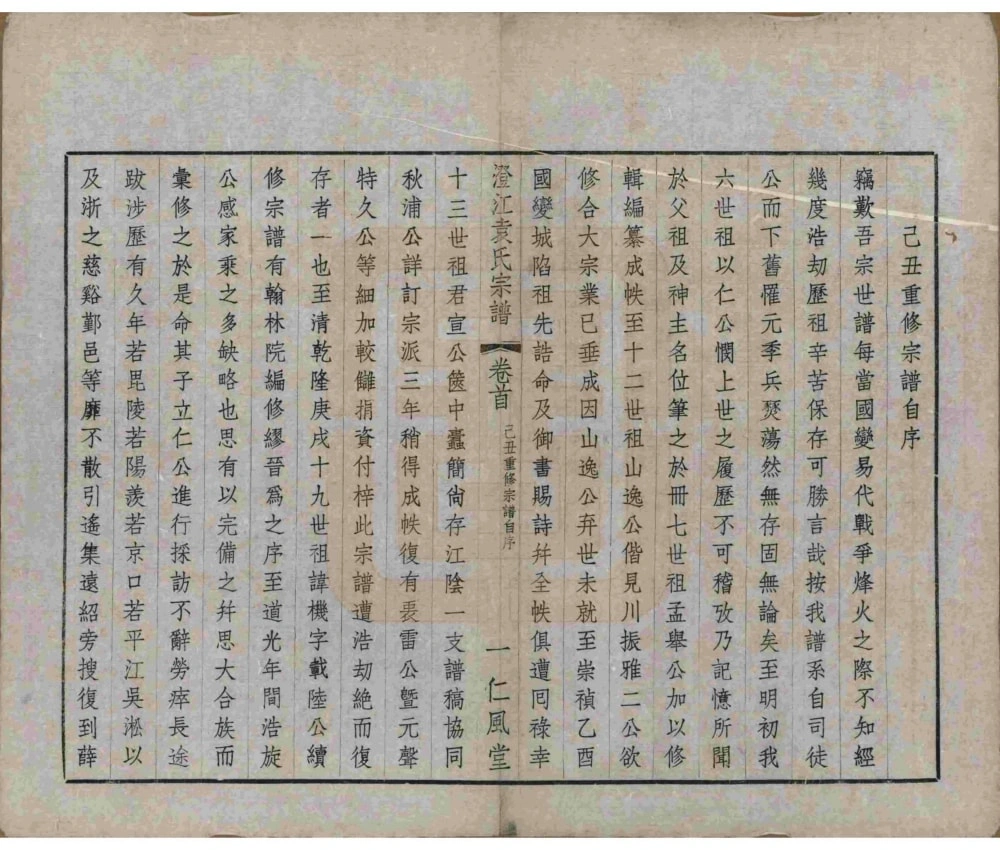 己丑重修宗譜自序
竊歎吾宗世譜每當國變易代戰爭烽火之際不知經
幾度浩劫歷祖辛苦保存可勝言哉按我譜系自司徒
公而下舊罹元季兵燹蕩然無存固無論矣至明初我
六世祖以仁公憫上世之履歷不可稽攷乃記憶所聞
於父祖及神主名位筆之於冊七世祖孟舉公加以修
輯編纂成帙至十二世祖山逸公偕見川振雅二公欲
修合大宗業已垂成因山逸公弃世未就至崇禎乙酉
國變城陷祖先誥命及御書賜詩幷全帙俱遭囘祿幸
澄江袁氏宗譜 卷首 己丑重修宗譜自序 一 仁風堂
十三世祖君宣公篋中蠹簡尙存江陰一支譜稿協同
秋浦公詳訂宗派三年稍得成帙復有裴雷公曁元聲
特久公等細加較讎捐資付梓此宗譜遭浩劫絶而復
存者一也至清乾隆庚戌十九世祖諱機字載陸公續
修宗譜有翰林院編修繆晉爲之序至道光年間浩旋
公感家乘之多缺略也思有以完備之幷思大合族而
彙修之於是命其子立仁公進行採訪不辭勞瘁長途
跋涉歷有久年若毘陵若陽羨若京口若平江吳淞以
及浙之慈谿鄞邑等靡不散引遙集遠紹旁搜復到薛